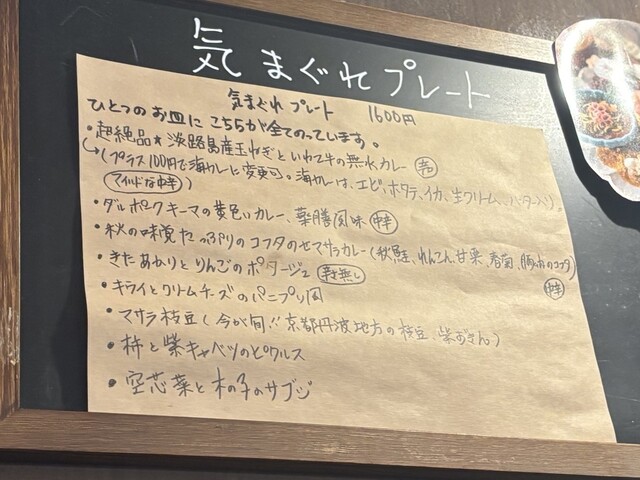 気まぐれプレート
気まぐれプレート 1600円
ひとつのお皿にこちらが全てのっています。
・超絶品★淡路島産玉ねぎといわて牛の無水カレー
(プラス100円で海カレーに変更可。海カレーは、エビ、ホタテ、イカ、生クリーム、バター入り。
マイルドな中辛)
・ダルポークキーマの黄色いカレー、薬膳風味 中辛
・秋の味覚たっぷりのコフタのせマサラカレー(秋鮭、れんこん、甘栗、春菊、豚ひ肉のコフタ)
中辛
・きたあかりとりんごのポタージュ 辛さ無し
・キライとクリームチーズのパニプリ風
・マサラ枝豆(今が旬!!京都丹波地方の枝豆、紫ずきん)
・柿と紫キャベツのピクルス
・空芯菜と木の子のサブジ